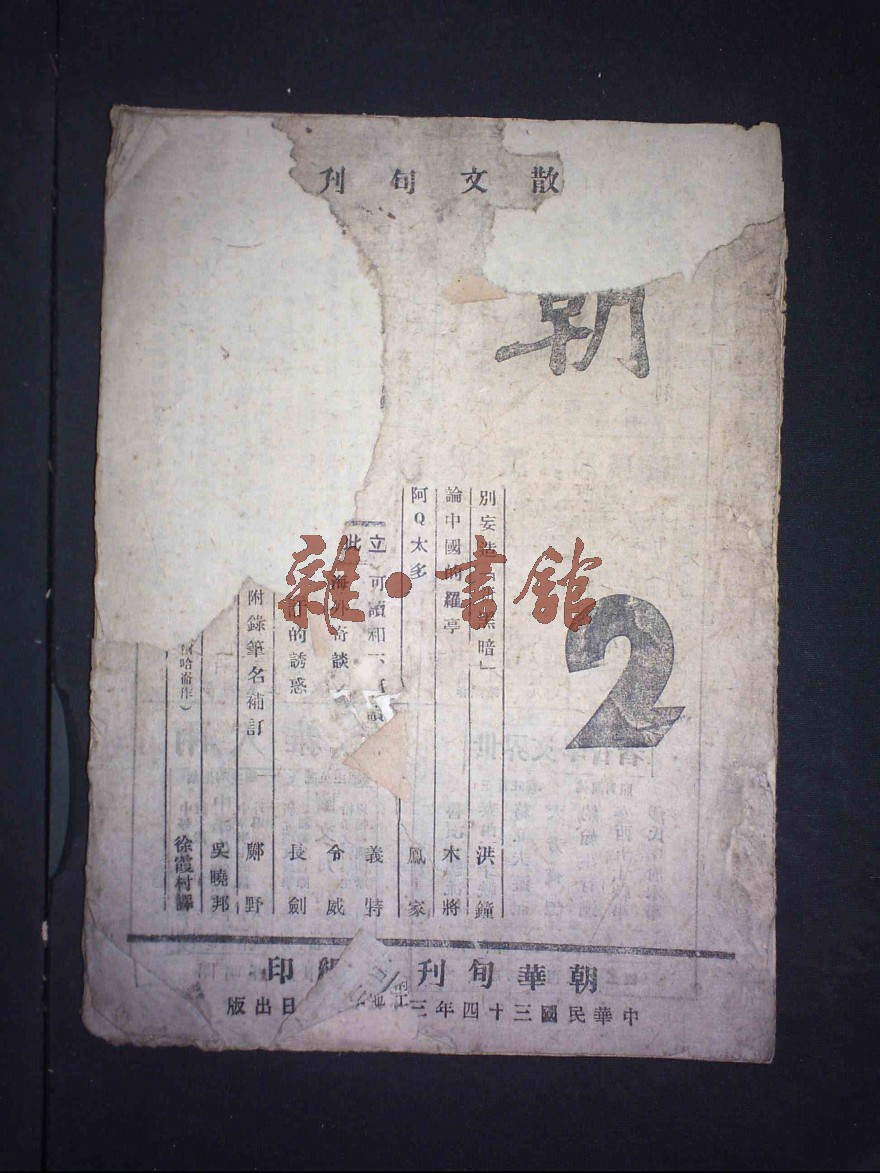 散文旬刊
朝
2
別妄造「 黑暗」 洪鐘
論中國的羅亭 木將
阿Q太多 鳳家
立 可讀和 義特
此 海外奇談 令威
的誘惑 長劍
附錄筆名補訂 鄭野
吳曉邦
作） 徐霞村譯
朝華旬刊 印
中華民國三十四年三 日出版
雜·書館